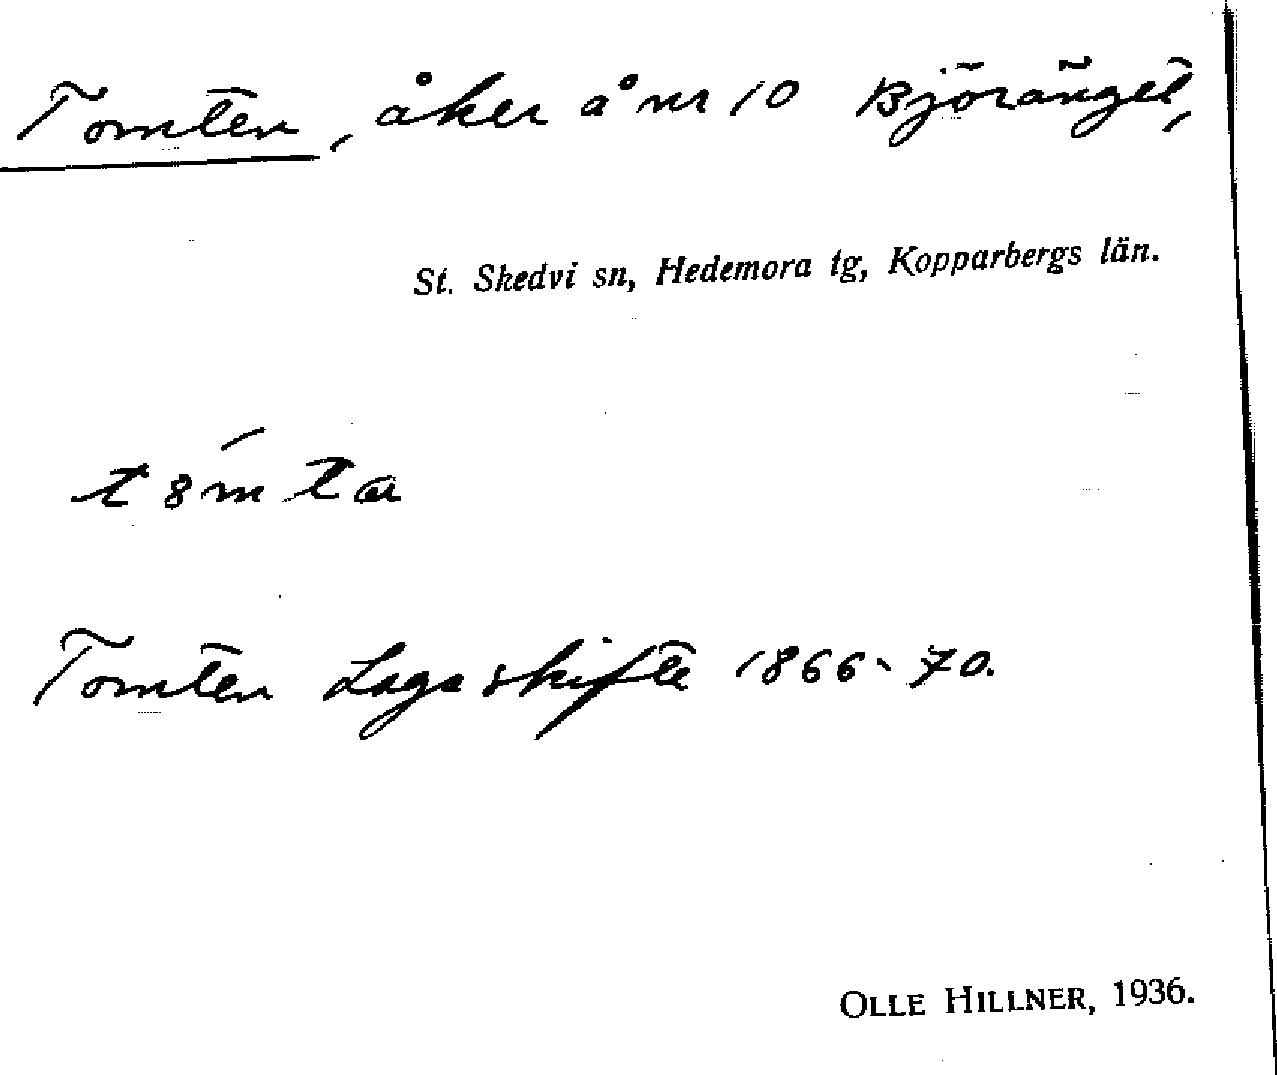 Tomten, åker å nr 10 Björänget,
St. Skedvi sn, Hedemora tg, Kopparbergs län.
Tomten Laga skifte 1866-70.
OLLE HILLNER, 1936.